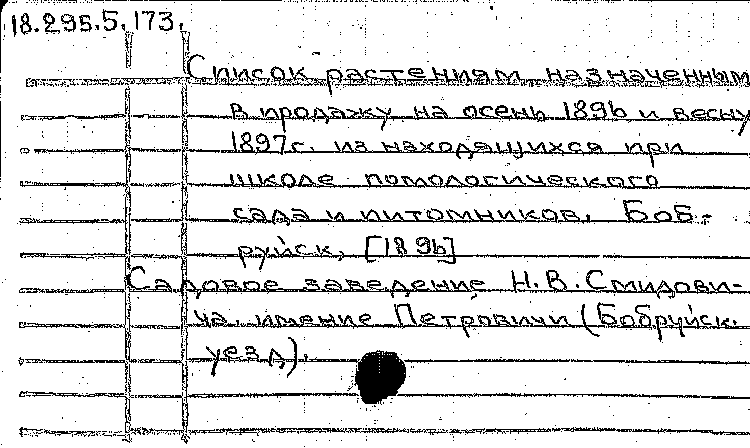 18.295.5.173.
Список растениям, назначенным
в продажу на осень 1896 и весну
1897г. из находящихся при
школе помологического
сада и питомников. Боб-
руйск, [1896]
Садовое заведение Н.В.Смидови-
ча, имение Петровичи (Бобруйск.
уезд).